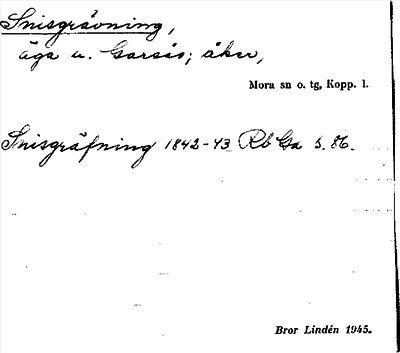 Snisgrävning,
äga u. Garsås; åker,
Mora sn o. tg, Kopp. l.
Snisgräfning 1842-43 Rb Ga S. 86.
Bror Lindén 1945.